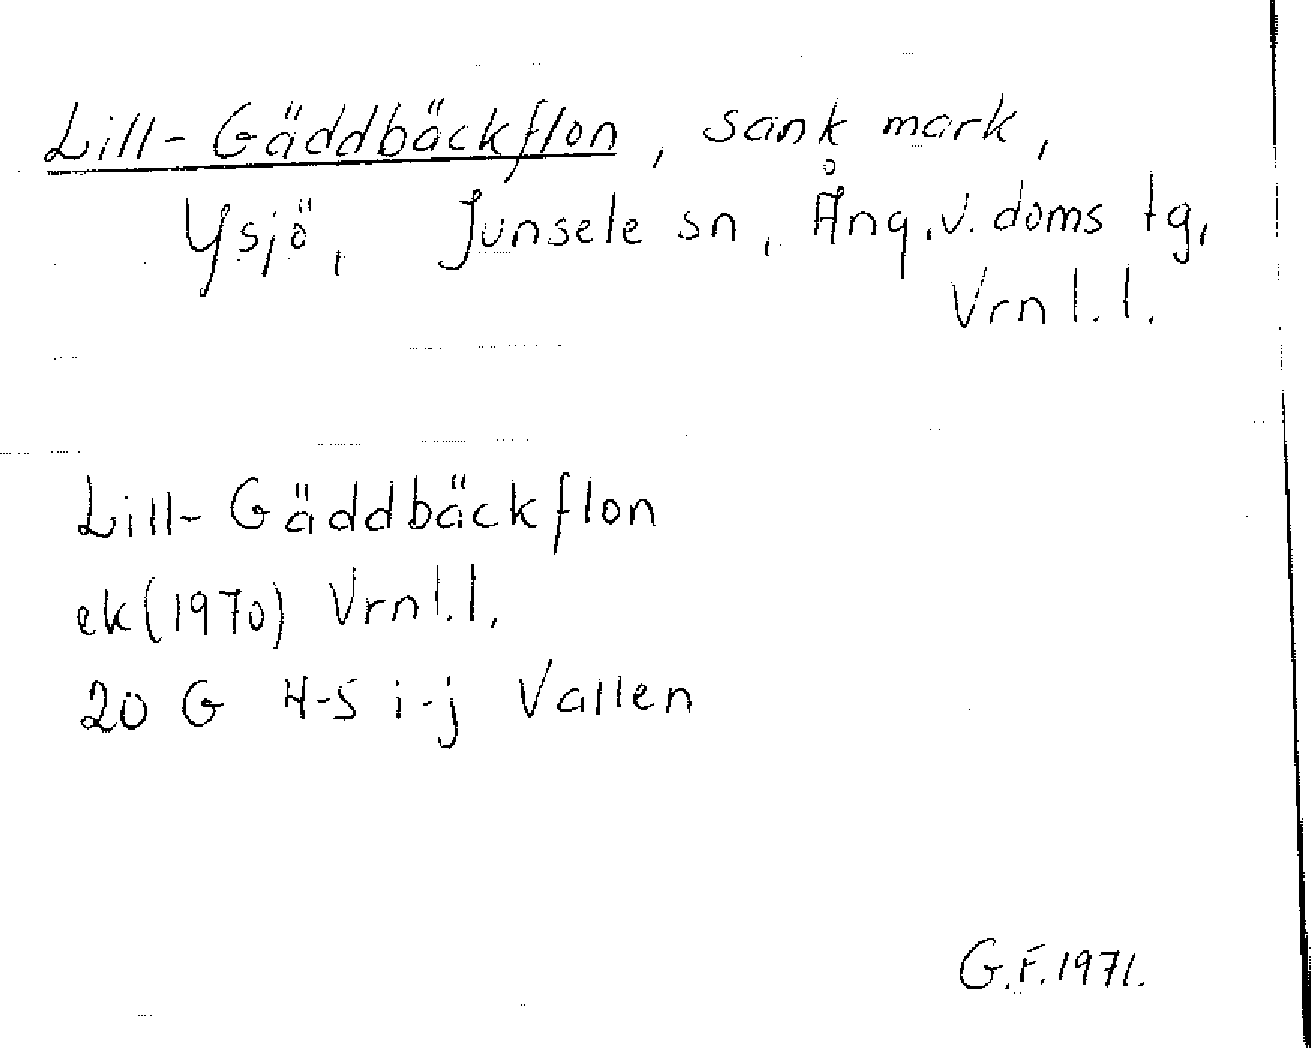 Lill-Gäddbäckflon, sank mark,
Ysjö, Junsele sn, Ång.v. doms tg,
Vrnl.l.
Lill-Gäddbäckflon
ek(1970) Vrnl.l.
20 G 4-5 i-j Vallen
G.F.1971.